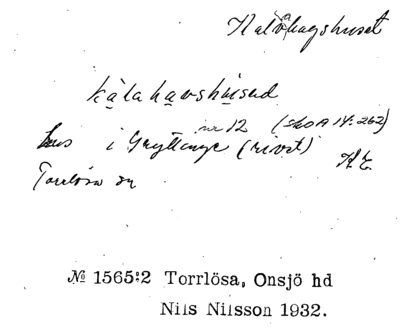 kålahavshused
nr 12 (SkOA 14:262)
hus i Gryttinge (rivet)
Torrlösa sn
№ 1565:2 Torrlösa, Onsjö hd
Nils Nilsson 1932.